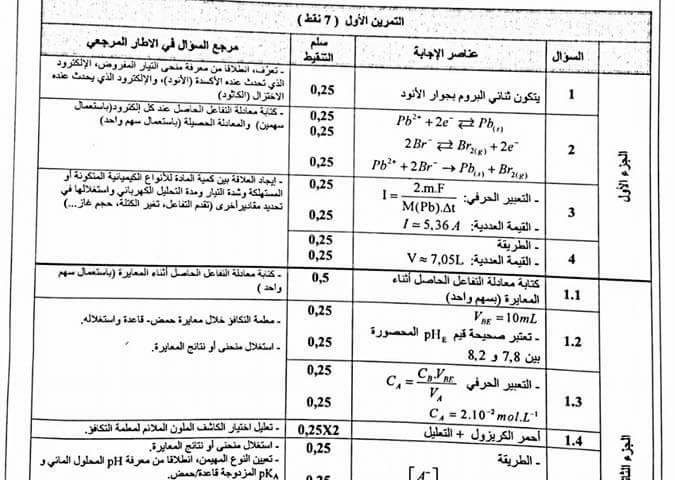 التمرين الأول ( 7 نقط )
السؤال
عناصر الإجابة
سلم التنقيط
مرجع السؤال في الاطار المرجعي
الجزء الأول
1
يتكون ثنائي البروم بجوار الأنود
0,25
- تعرف، انطلاقا من معرفة منحى التيار المفروض، الإلكترود
الذي تحدث عنده الأكسدة (الأنود)، والإلكترود الذي يحدث عنده
الاختزال (الكاثود)
2
Pb²⁺ + 2e⁻ ⇄ Pb(s)
2Br⁻ ⇄ Br2(g) + 2e⁻
Pb²⁺ + 2Br⁻ → Pb(s) + Br2(g)
0,25
0,25
0,25
- كتابة معادلة التفاعل الحاصل عند كل إلكترود(باستعمال
سهمين) والمعادلة الحصيلة (باستعمال سهم واحد)
3
- التعبير الحرفي: I = 2.m.F / M(Pb).Δt
- القيمة العددية: I ≃ 5,36 A
0,25
0,25
- إيجاد العلاقة بين كمية المادة للأنواع الكيميائية المتكونة أو
المستهلكة وشدة التيار ومدة التحليل الكهربائي واستغلالها في
تحديد مقادير أخرى (تقدم التفاعل، تغير الكتلة، حجم غاز...)
4
- الطريقة
- القيمة العددية: V ≈ 7,05L
0,25
0,25
1.1
كتابة معادلة التفاعل الحاصل أثناء
المعايرة (بسهم واحد)
0,5
- كتابة معادلة التفاعل الحاصل أثناء المعايرة (باستعمال سهم
واحد )
1.2
V_BE = 10mL
- تعتبر صحيحة قيم pH_E المحصورة
بين 7,8 و 8,2
0,25
0,25
- معلمة التكافؤ خلال معايرة حمض- قاعدة واستغلاله.
- استغلال منحنى أو نتائج المعايرة.
1.3
- التعبير الحرفي C_A = C_B.V_BE / V_A
C_A = 2.10⁻² mol.L⁻¹
0,25
0,25
1.4
أحمر الكريزول + التعليل
0,25X2
- تعليل اختيار الكاشف الملون الملائم لمعلمة التكافؤ.
- الطريقة
[A⁻]
0,25
0,25
- استغلال منحنى أو نتائج المعايرة.
- تعيين النوع المهيمن، انطلاقا من معرفة pH المحلول المائي و
pK_A المزدوجة قاعدة/حمض.